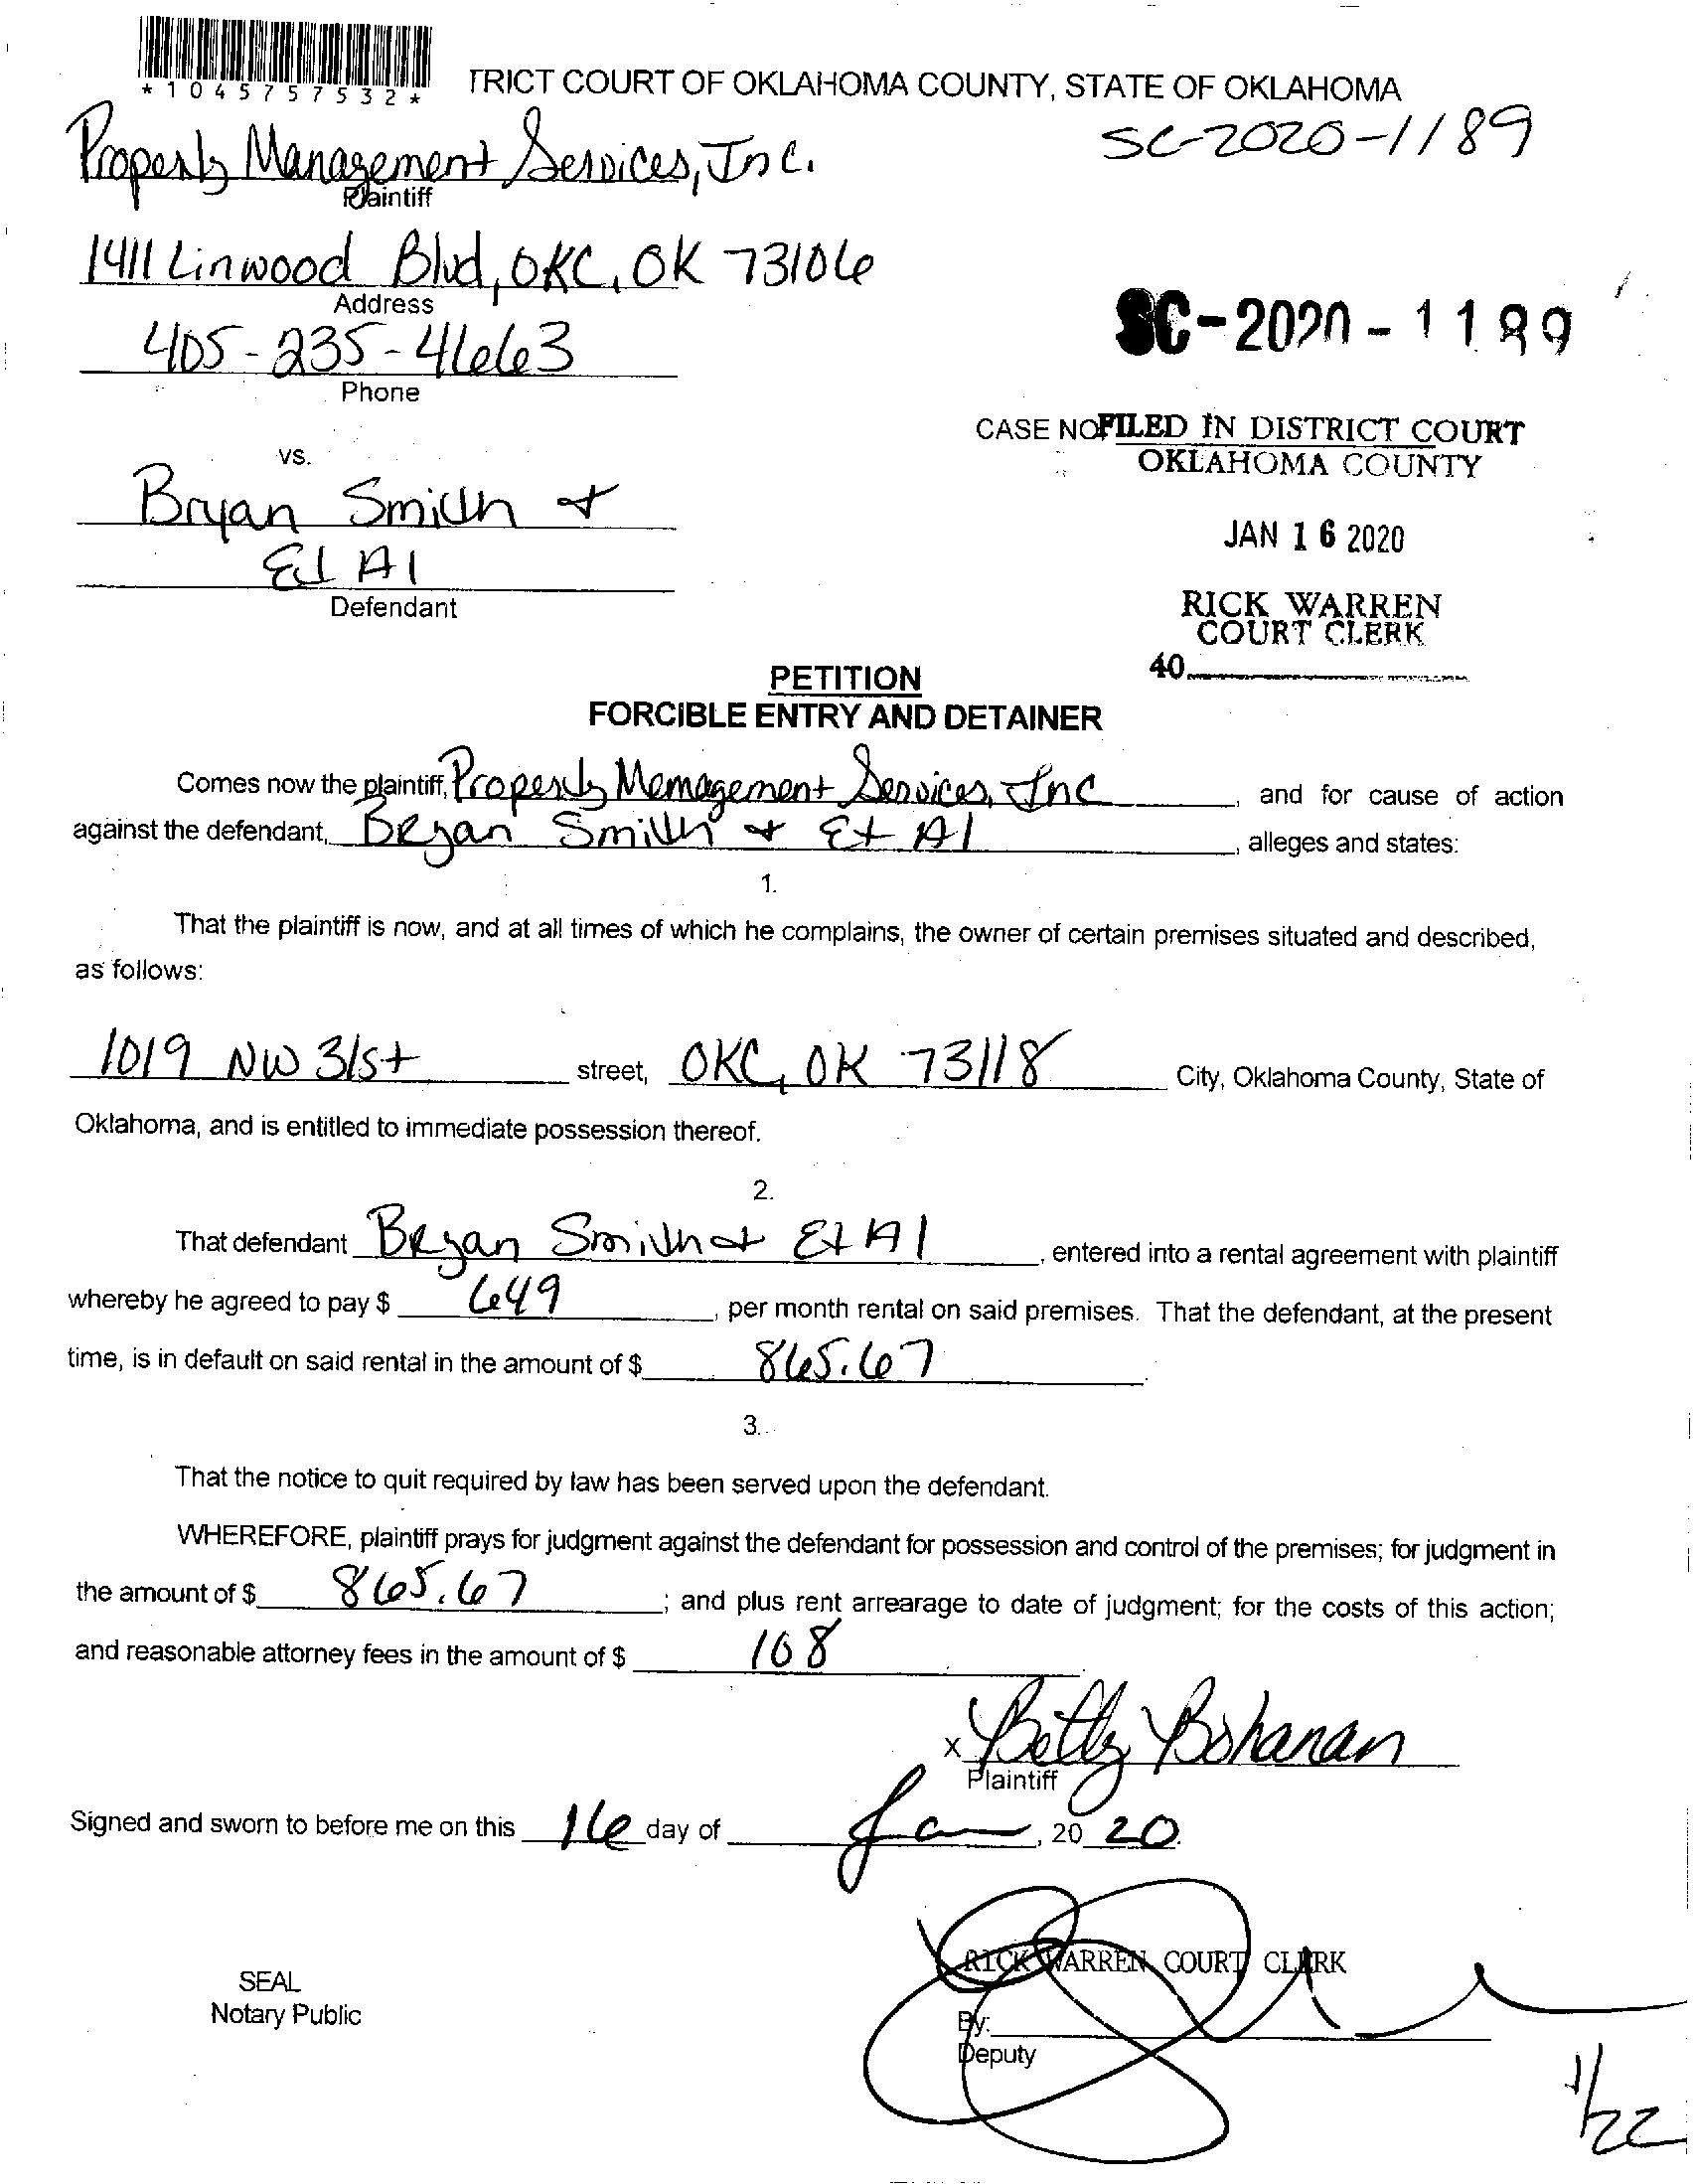 *1045757532*
TRICT COURT OF OKLAHOMA COUNTY, STATE OF OKLAHOMA
SC-2020-1189
Property Management Services, Inc.
Plaintiff
1411 Linwood Blvd, OKC, OK 73106
Address
SC-2020-1189
405-235-4663
Phone
CASE NO FILED IN DISTRICT COURT
OKLAHOMA COUNTY
vs.
Bryan Smith &
Et Al
Defendant
JAN 16 2020
RICK WARREN
COURT CLERK
40
PETITION
FORCIBLE ENTRY AND DETAINER
Comes now the plaintiff, Property Management Services, Inc, and for cause of action
against the defendant, Bryan Smith & Et Al, alleges and states:
1.
That the plaintiff is now, and at all times of which he complains, the owner of certain premises situated and described,
as follows:
1019 NW 31st street, OKC, OK 73118 City, Oklahoma County, State of
Oklahoma, and is entitled to immediate possession thereof.
2.
That defendant Bryan Smith & Et Al, entered into a rental agreement with plaintiff
whereby he agreed to pay $ 649, per month rental on said premises. That the defendant, at the present
time, is in default on said rental in the amount of $ 865.67.
3.
That the notice to quit required by law has been served upon the defendant.
WHEREFORE, plaintiff prays for judgment against the defendant for possession and control of the premises; for judgment in
the amount of $ 865.67; and plus rent arrearage to date of judgment; for the costs of this action;
and reasonable attorney fees in the amount of $ 108
x Betty Bohanan
Plaintiff
Signed and sworn to before me on this 16 day of Jan, 20 20.
RICK WARREN COURT CLERK
SEAL
Notary Public
By:
Deputy
1/22